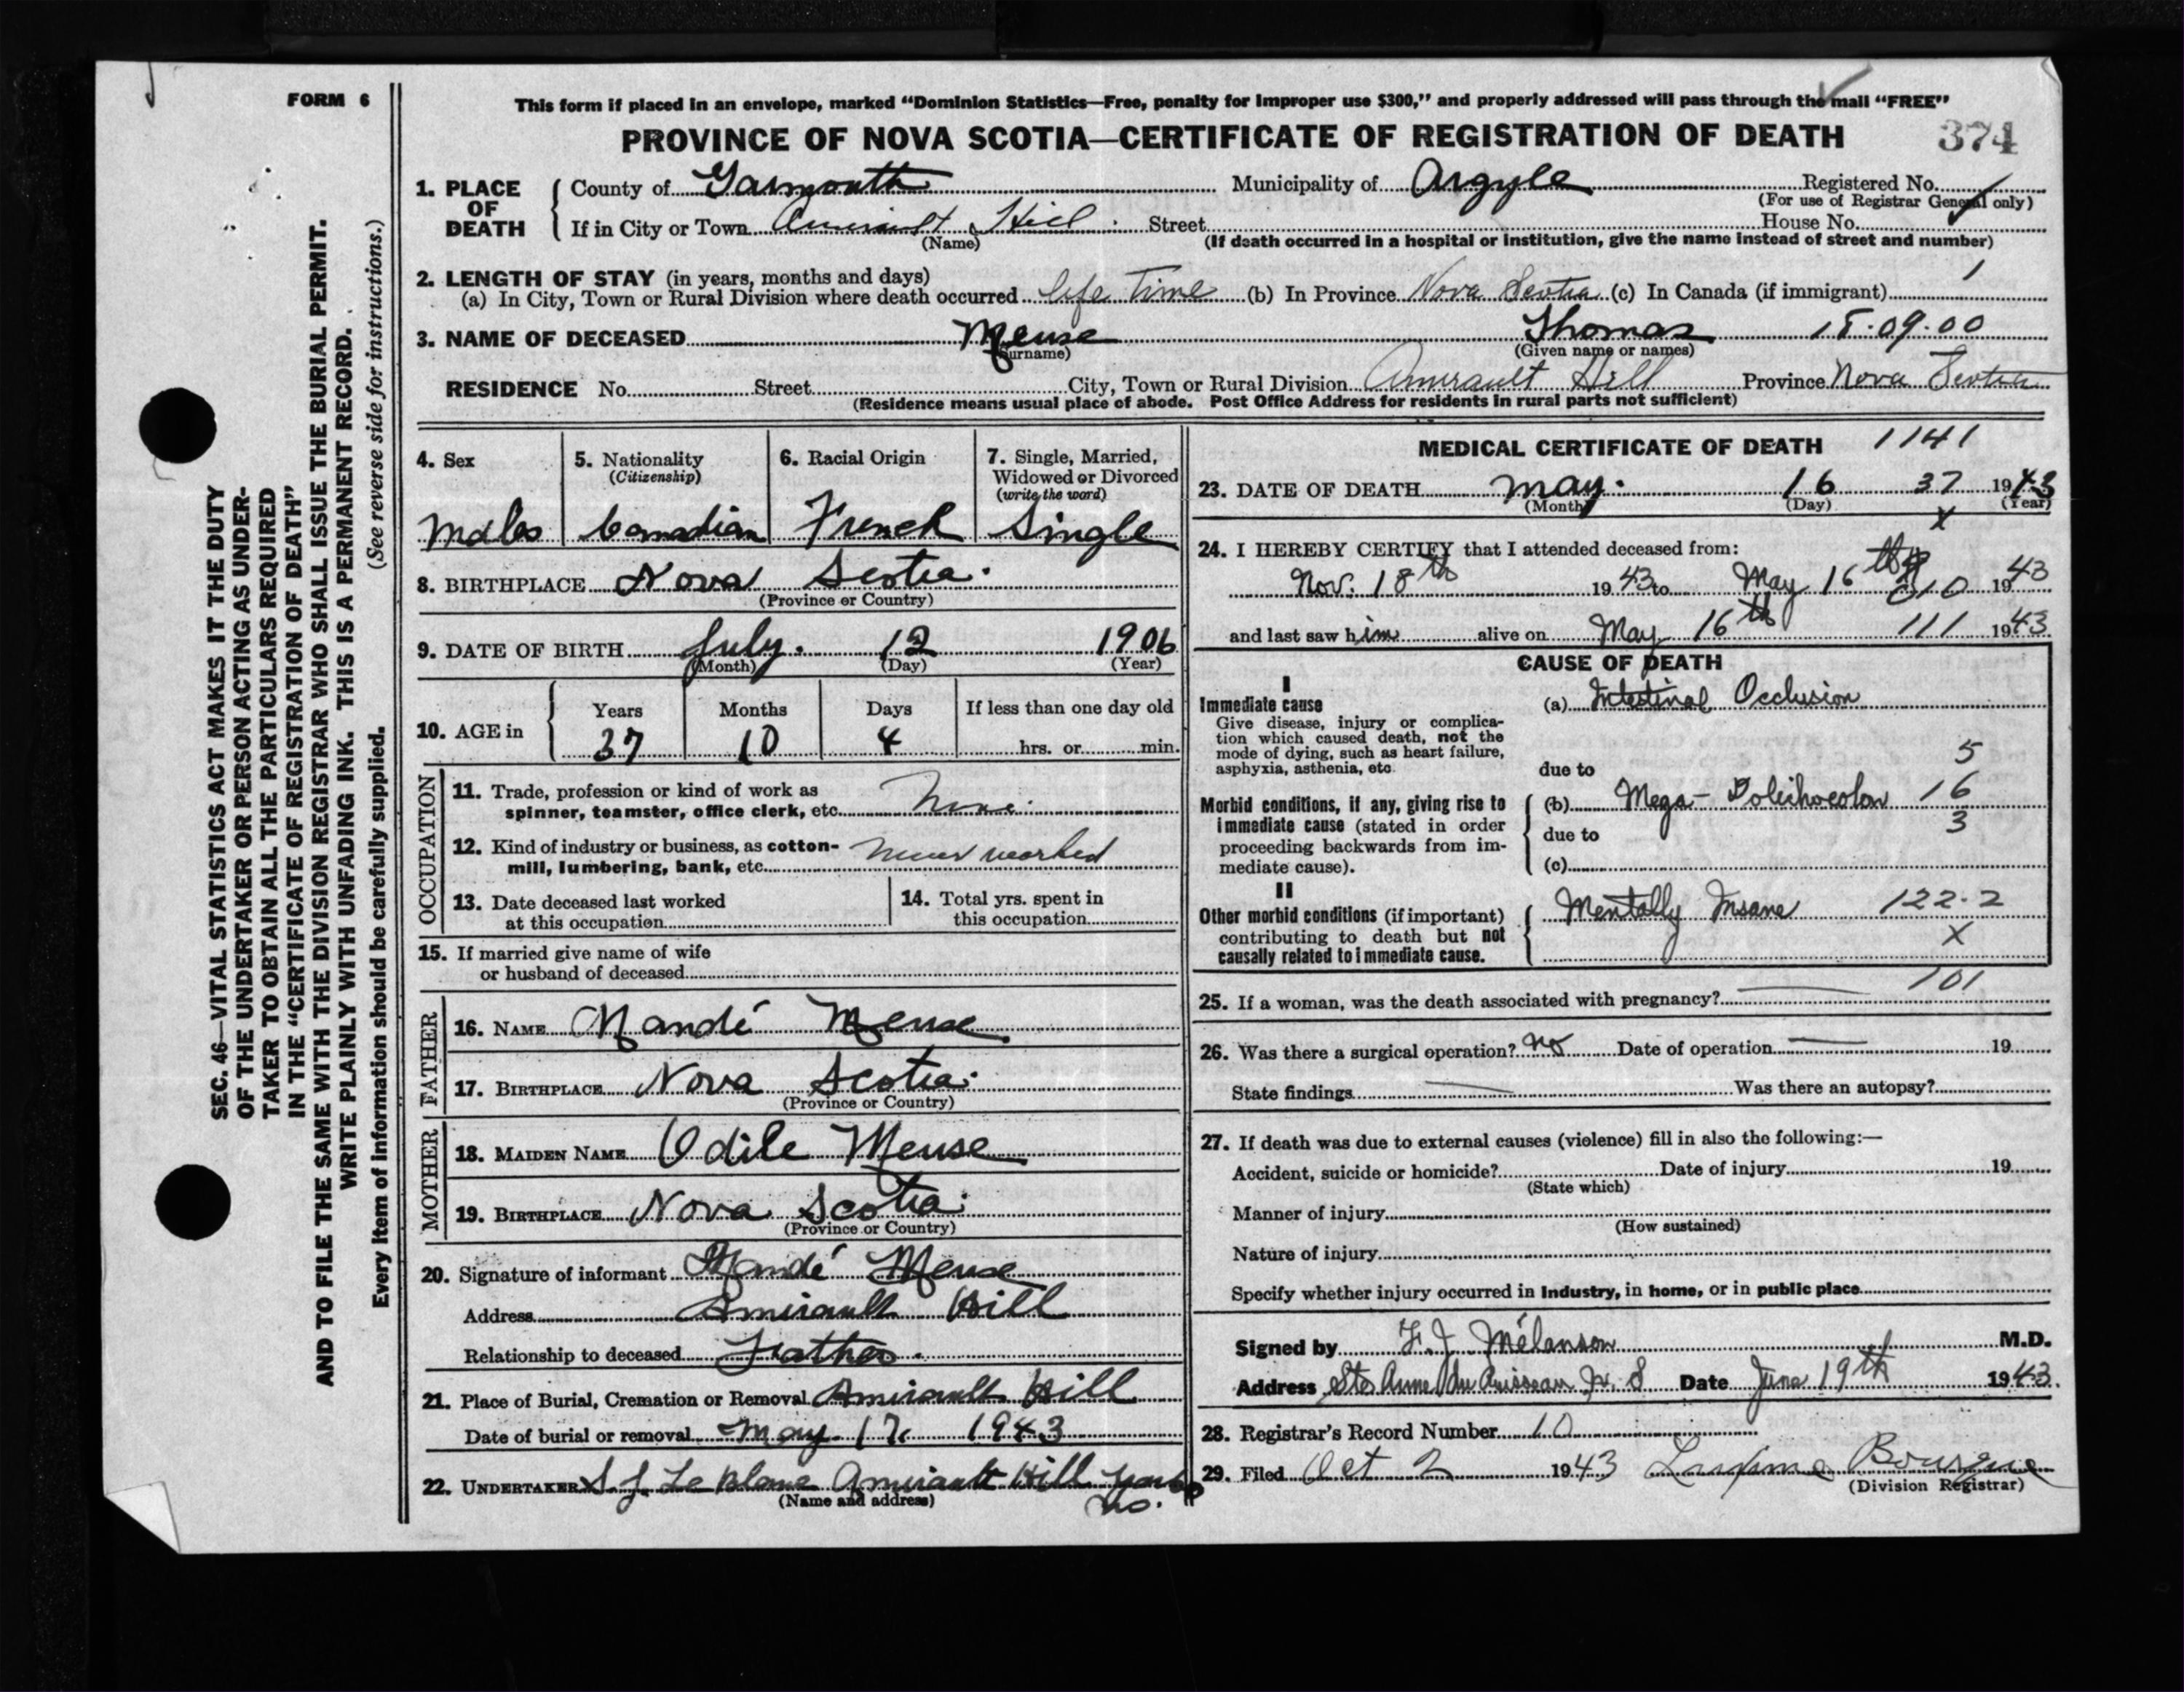 FORM 6
This form if placed in an envelope, marked "Dominion Statistics—Free, penalty for improper use $300," and properly addressed will pass through the mail "FREE"
PROVINCE OF NOVA SCOTIA—CERTIFICATE OF REGISTRATION OF DEATH
374
1. PLACE OF DEATH
County of Yarmouth Municipality of Argyle Registered No.
(For use of Registrar General only)
If in City or Town Amirault Hill Street House No.
(Name) (If death occurred in a hospital or institution, give the name instead of street and number)
2. LENGTH OF STAY (in years, months and days)
(a) In City, Town or Rural Division where death occurred life Time (b) In Province Nova Scotia (c) In Canada (if immigrant) 1
3. NAME OF DECEASED Meuse Thomas 15.09.00
(Surname) (Given name or names)
RESIDENCE No. Street City, Town or Rural Division Amirault Hill Province Nova Scotia
(Residence means usual place of abode. Post Office Address for residents in rural parts not sufficient)
4. Sex
Male
5. Nationality
(Citizenship)
Canadian
6. Racial Origin
French
7. Single, Married,
Widowed or Divorced
(write the word)
Single
8. BIRTHPLACE Nova Scotia.
(Province or Country)
9. DATE OF BIRTH July. 12 1906
(Month) (Day) (Year)
10. AGE in
Years Months Days If less than one day old
37 10 4 hrs. or min.
OCCUPATION
11. Trade, profession or kind of work as
spinner, teamster, office clerk, etc. None.
12. Kind of industry or business, as cotton-
mill, lumbering, bank, etc. never worked
13. Date deceased last worked
at this occupation
14. Total yrs. spent in
this occupation
15. If married give name of wife
or husband of deceased
FATHER
16. NAME Mandé Meuse
17. BIRTHPLACE Nova Scotia.
(Province or Country)
MOTHER
18. MAIDEN NAME Odile Meuse
19. BIRTHPLACE Nova Scotia.
(Province or Country)
20. Signature of informant Mandé Meuse
Address Amirault Hill
Relationship to deceased Father.
21. Place of Burial, Cremation or Removal Amirault Hill
Date of burial or removal May 17. 1943
22. UNDERTAKER S J LeBlanc Amirault Hill Yarm Co
(Name and address)
N.S.
MEDICAL CERTIFICATE OF DEATH 1141
23. DATE OF DEATH May. 16 37 1943
(Month) (Day) (Year)
X
24. I HEREBY CERTIFY that I attended deceased from:
Nov. 18th 1943 to May 16th 010 1943
and last saw him alive on May 16th 111 1943
CAUSE OF DEATH
I
Immediate cause
Give disease, injury or complica-
tion which caused death, not the
mode of dying, such as heart failure,
asphyxia, asthenia, etc.
(a) Intestinal Occlusion
due to 5
Morbid conditions, if any, giving rise to
immediate cause (stated in order
proceeding backwards from im-
mediate cause).
(b) Mega-Dolichocolon 16
due to 3
(c)
II
Other morbid conditions (if important)
contributing to death but not
causally related to immediate cause.
Mentally Insane 122.2
X
25. If a woman, was the death associated with pregnancy? 101
26. Was there a surgical operation? No Date of operation — 19
State findings — Was there an autopsy?
27. If death was due to external causes (violence) fill in also the following:—
Accident, suicide or homicide? Date of injury 19
(State which)
Manner of injury
(How sustained)
Nature of injury
Specify whether injury occurred in industry, in home, or in public place
Signed by F. J. Mélanson M.D.
Address Ste Anne du Ruisseau N. S Date June 19th 1943.
28. Registrar's Record Number 10
29. Filed Oct 2 1943 Bourque
(Division Registrar)
SEC. 46—VITAL STATISTICS ACT MAKES IT THE DUTY
OF THE UNDERTAKER OR PERSON ACTING AS UNDER-
TAKER TO OBTAIN ALL THE PARTICULARS REQUIRED
IN THE "CERTIFICATE OF REGISTRATION OF DEATH"
AND TO FILE THE SAME WITH THE DIVISION REGISTRAR WHO SHALL ISSUE THE BURIAL PERMIT.
WRITE PLAINLY WITH UNFADING INK. THIS IS A PERMANENT RECORD.
Every item of information should be carefully supplied. (See reverse side for instructions.)